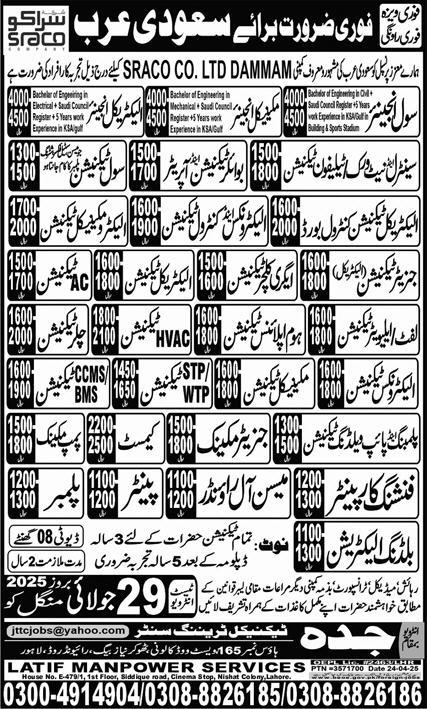 فوری ویزہ
فوری روانگی
فوری ضرورت برائے سعودی عرب
شركة
سراكو
SRACO
COMPANY
ہمارے معزز پرنسپل کو سعودی عرب کی مشہور و معروف کمپنی SRACO CO. LTD DAMMAM کیلئے درج ذیل تجربہ کار افراد کی ضرورت ہے
سول انجینئر
Bachelor of Engineering in Civil + Saudi Council Register +5 Years work Experience in KSA/Gulf in Building & Sports Stadium
4000
4500
ریال
مکینیکل انجینئر
Bachelor of Engineering in Mechanical + Saudi Council Register +5 Years work Experience in KSA/Gulf
4000
4500
ریال
الیکٹریکل انجینئر
Bachelor of Engineering in Electrical + Saudi Council Register +5 Years work Experience in KSA/Gulf
4000
4500
ریال
سینٹرل نیٹ ورک/ٹیلیفون ٹیکنیشن
1500
1800
بوائلر ٹیکنیشن اینڈ آپریٹر
1500
1700
سول ٹیکنیشن
1300
1500
الیکٹریکل ٹیکنیشن کنٹرول بورڈ
1600
2000
الیکٹرونکس اینڈ کنٹرول ٹیکنیشن
1600
1900
الیکٹرو مکینیکل ٹیکنیشن
1700
2000
جنریٹر ٹیکنیشن (الیکٹریکل)
1600
1800
ایگری کلچر ٹیکنیشن
1500
1600
الیکٹریکل ٹیکنیشن
1600
1800
AC ٹیکنیشن
1500
1700
لفٹ/ایلیویٹر ٹیکنیشن
1600
1800
ہوم اپلائنس ٹیکنیشن
1600
1800
HVAC ٹیکنیشن
1800
2100
چلر ٹیکنیشن
1600
2000
الیکٹرونکس ٹیکنیشن
1600
1800
مکینیکل ٹیکنیشن
1600
1800
STP/WTP ٹیکنیشن
1450
1650
CCMS/BMS ٹیکنیشن
1600
1900
پلمبنگ اینڈ پائپ ویلڈنگ ٹیکنیشن
1300
1500
جنریٹر مکینک
1500
1800
کیمسٹ
2200
2500
پمپ مکینک
1500
1800
فنشنگ کارپینٹر
1200
1300
میسن آل راؤنڈر
1100
1200
پینٹر
1100
1200
پلمبر
1200
1300
بلڈنگ الیکٹریشن
1100
1300
نوٹ: تمام ٹیکنیشن حضرات کے لئے 3 سالہ ڈپلومہ کے بعد 5 سالہ تجربہ ضروری
ڈیوٹی 08 گھنٹے
مدت ملازمت 2 سال
رہائش، میڈیکل، ٹرانسپورٹ بذمہ کمپنی دیگر مراعات مقامی لیبر قوانین کے
مطابق خواہشمند حضرات اپنے مکمل کاغذات کے ہمراہ تشریف لائیں
ٹیسٹ
انٹرویو
29 جولائی 2025 بروز منگل کو
انٹرویو بمقام
جدہ ٹیکنیکل ٹریننگ سنٹر
jttcjobs@yahoo.com
ہاؤس نمبر 165 ویسٹ ووڈ کالونی ٹھوکر نیاز بیگ، رائیونڈ روڈ، لاہور
LATIF MANPOWER SERVICES
OEPL Lic. #2463/LHR
PTN #3571700 Date 24-04-25
House No. E-479/1, 1st Floor, Siddique road, Cinema Stop, Nishat Colony, Lahore.
0300-4914904/0308-8826185/0308-8826184